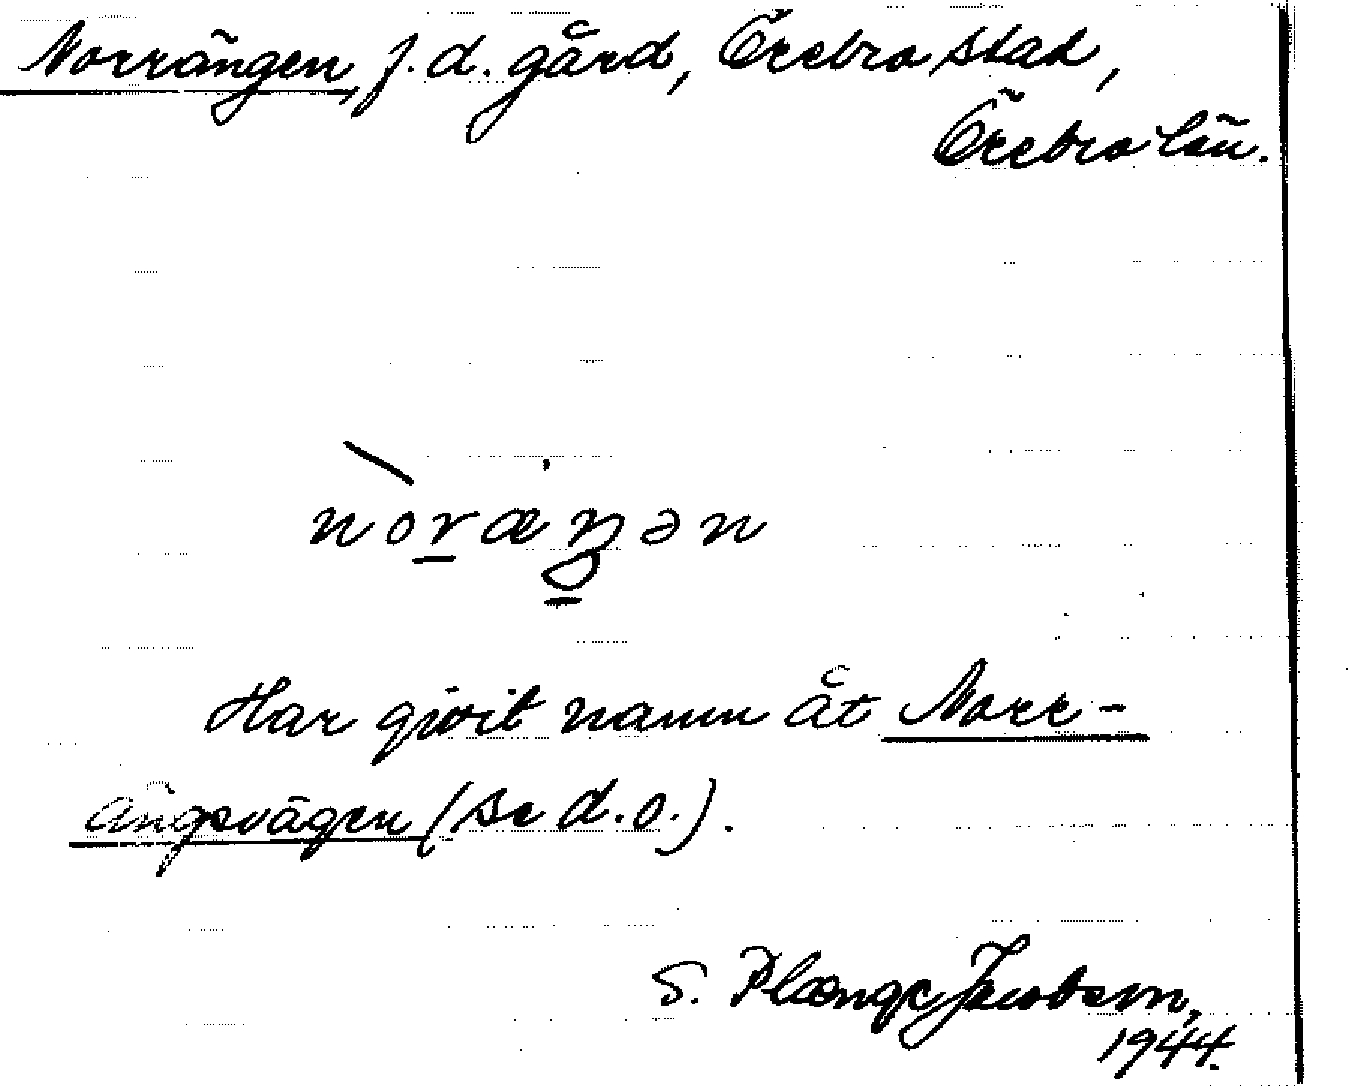 Norrängen, f. d. gård, Örebro stad,
Örebro län.
noræŋən
Har givit namn åt Norr-
ängsvägen (se d. o.).
S. Plænge Jacobson,
1944.